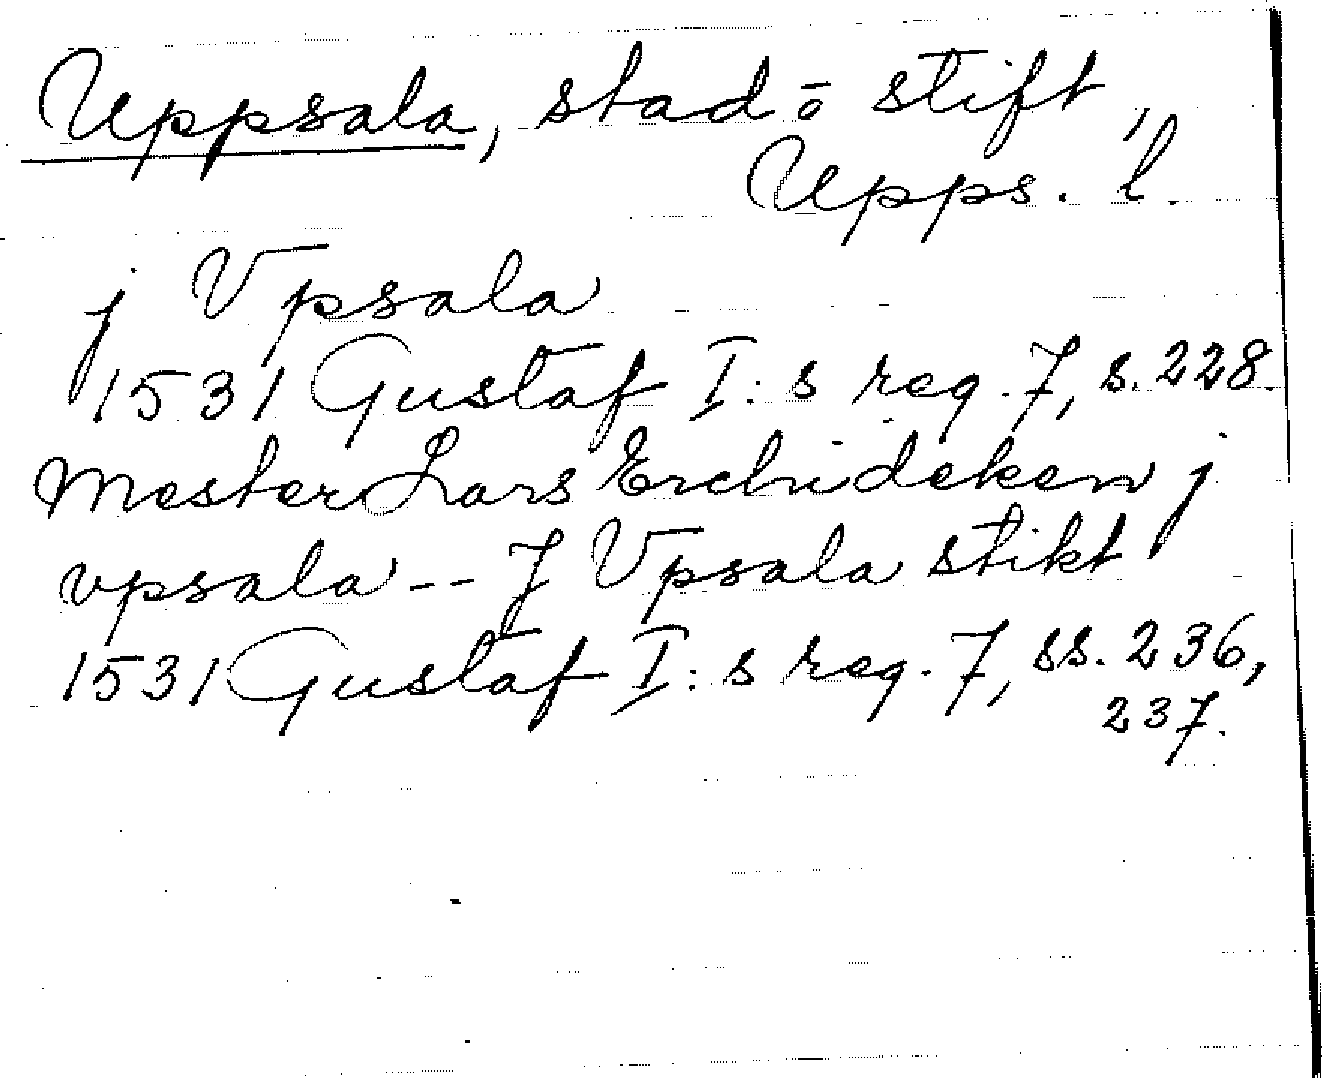 Uppsala, stad o stift,
Upps. l.
j Vpsala
1531 Gustaf I:s reg. 7, s. 228.
Mester Lars Erchideken j
vpsala -- J Vpsala stikt
1531 Gustaf I:s reg. 7, ss. 236,
237.